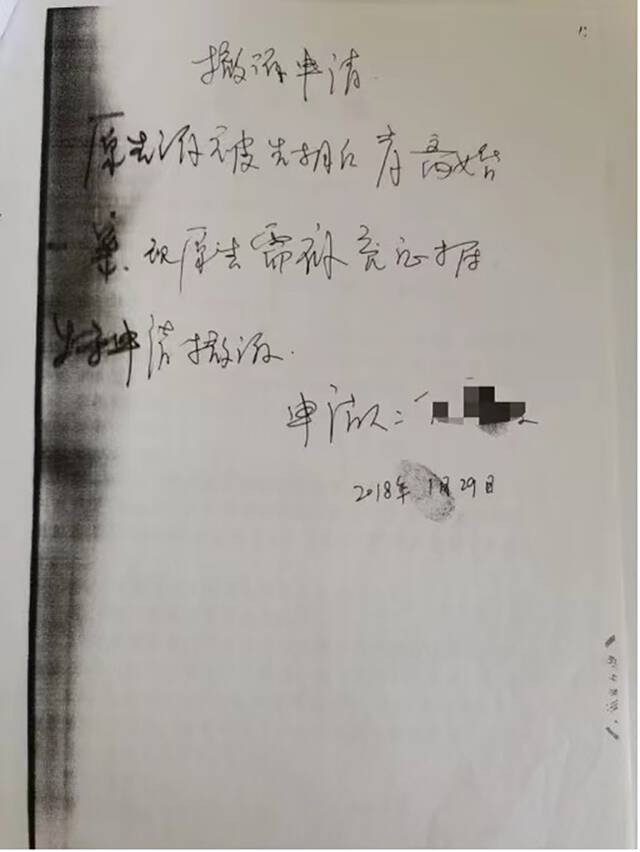 撤诉申请
原告诉被告胡 离婚
案.现原告需补充证据
申请撤诉.
申请人:
2018年1月29日